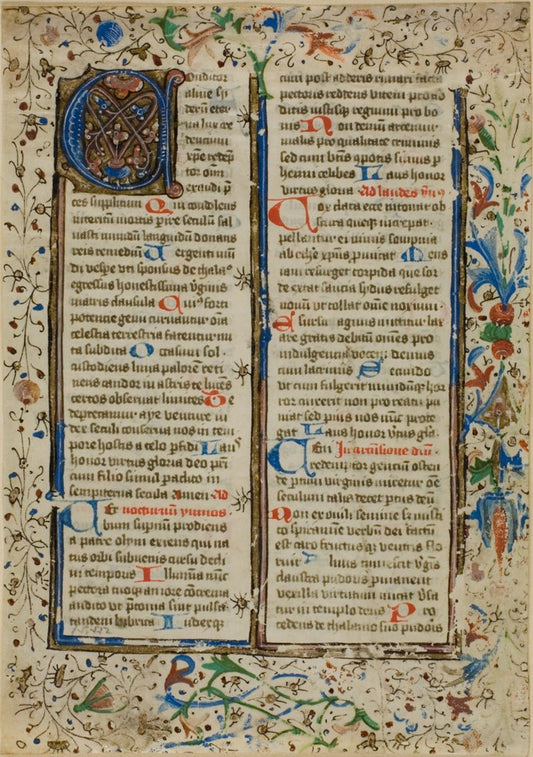 Conditor
alme si
derũ eter
na lux cre
dencium
xpe redẽp
tor om̃
exaudi p̃
ces supplicum Qui condolens
interitu mortis p̃ire seculũ sal
uasti mundũ languidũ donans
reis remedium Uergenti mũ
di vespe uti sponsus de thalaº
egressus honestissima vginis
matris clausula Cuiº forti
potencie genu curuantur oĩa
celestia terrestria fatentur nu
tu subdita Occasum sol
custodiens luna palorẽ reti
nens candor in astris relucẽs
certos obseruat limites Te
deprecamur aye venture iu
dex seculi conserua nos in tem
pore hostis a telo pfidi Lausˀ
honor virtus gloria deo pr̃i
cum filio simul paclico in
sempiterna secula Amen Ad
nocturnũ ymnos
Uerbum supnũ prodiens
a patre olym exiens qui na
tus orbi subuenis cursu decli
ui temporis Illumĩa nũc
pectora tuoq; amore cõcrema
audito ut p̃conia sint pulsa
tandem lubrica Iudexq;
cum post aderis rimari facta
pectoris reddens vicem pro ab
ditis iustisq; regnum pro bo
nis Non demũ arcemur
malis pro qualitate criminis
sed cum btĩs cpotes simus p
hennit celibes Laus honor
virtus gloria Ad laudes ym9
Uox clara ecce intonat ob
scura queq; increpat
pellantur eminus sompnia
ab ethe xpus pmicat Mens
iam resurget torpida que sor
de extat saucia sydus refulget
nouũ ut tollat om̃e noxium
E sursu agnus mittitur lax
are gratis debitũ om̃es pro
indulgencia vocem demus
cum lacrimis Secundo
ut cum fulgerit mundũq; hor
ror cinxerit non pro reatu pu
niat sed pius nos nũc prote
gat Laus honor vtus gl̃a
In aruisione dñi
Ueni redemptor gencium osten
de ptum virginis miretur oẽ
seculum talis decet ptus deũ
Non ex virili semine sz misti
co spiramine verbũ dei factũ
est caro fructusq; ventris flo
ruit Aluus tumescit vgis
claustra pudoris pmanent
vexilla virtutum micat vsa
tur in templo deus Pro
cedens de thalamo suo pudoris